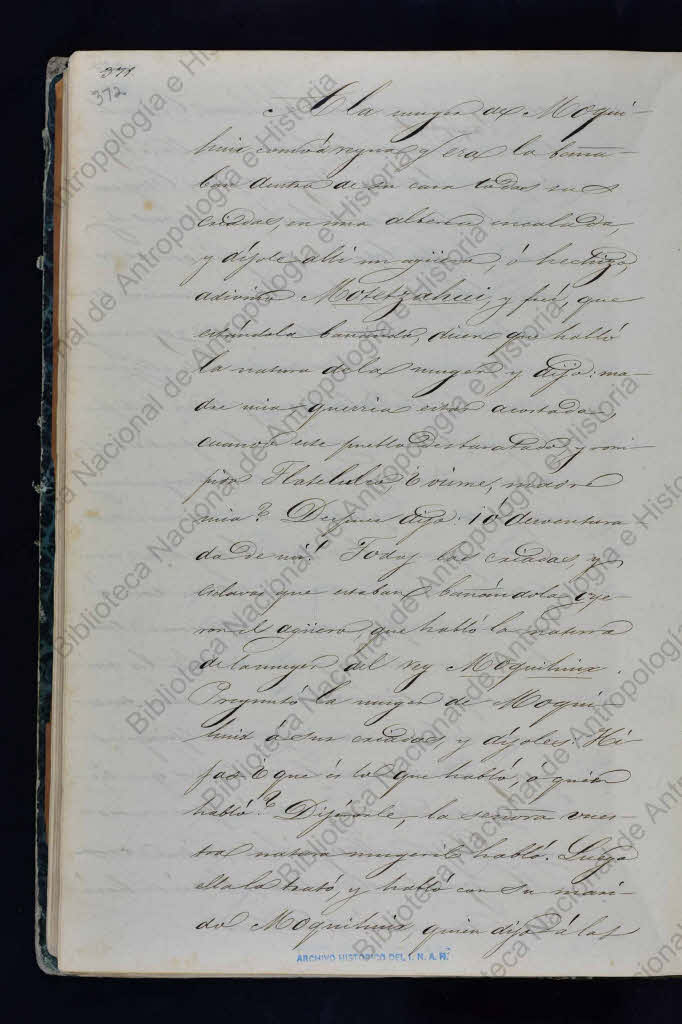 371
372
A la muger de Moqui-
huix como á reyna q.e era la baña-
ban dentro de su casa todas sus
criadas, en una alberca encalada,
y díjole allí un agüero, ó hechizo,
adivino y fué, que
estándola bañando, dicen que habló
la natura de la muger y dijo: ma-
dre mia querria estar acostada,
cuando este pueblo desbaratado y rom-
pido Tlatelulco, viene, madre
mia? Despues dijo: ¡ó desventura-
da de mí! Todas las criadas y
esclavas que estaban bañándola oye-
ron el agüero, que habló la natura
de la muger del rey Moquihuix.
Preguntó la muger de Moqui-
huix á sus criadas, y díjoles: Hi-
jas ¿que és lo que habló, ó quien
habló? Dijéronle, la señora vues-
tra natura mugeril habló. Luego
ella lo trató, y habló con su mari-
do Moquihuix, quien dijo á las
ARCHIVO HISTORICO DEL I. N. A. H.
Biblioteca Nacional de Antropología e Historia